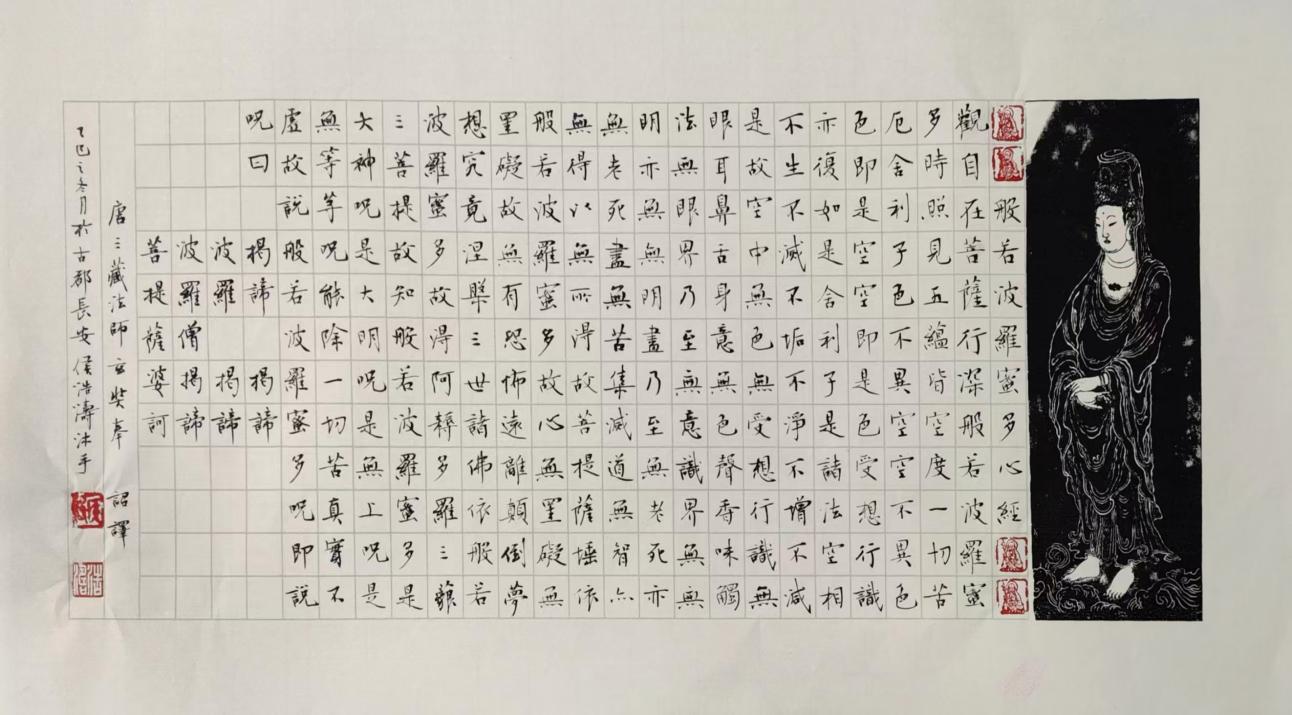 般若波羅蜜多心經
觀自在菩薩行深般若波羅蜜
多時照見五蘊皆空度一切苦
厄舍利子色不異空空不異色
色即是空空即是色受想行識
亦復如是舍利子是諸法空相
不生不滅不垢不淨不增不減
是故空中無色無受想行識無
眼耳鼻舌身意無色聲香味觸
法無眼界乃至無意識界無無
明亦無無明盡乃至無老死亦
無老死盡無苦集滅道無智亦
無得以無所得故菩提薩埵依
般若波羅蜜多故心無罣礙無
罣礙故無有恐怖遠離顛倒夢
想究竟涅槃三世諸佛依般若
波羅蜜多故得阿耨多羅三藐
三菩提故知般若波羅蜜多是
大神呪是大明呪是無上呪是
無等等呪能除一切苦真實不
虛故說般若波羅蜜多呪即說
呪曰 揭諦 揭諦
波羅 揭諦
波羅僧揭諦
菩提薩婆訶
唐三藏法師玄奘奉 詔譯
乙巳之冬月於古都長安侯浩濤沐手